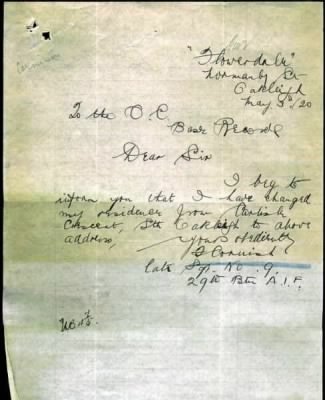 Cornish
"Flowerdale"
Normanby St
Oakleigh
May 3rd/20
To the O.C.
Base Records
Dear Sir
I beg to
inform you that I have changed
my residence from Carlisle
Crescent, Sth Oakleigh to above
address,
Yours obediently
Cornish
late Sgt No. 9.
29th Btn A.I.F.